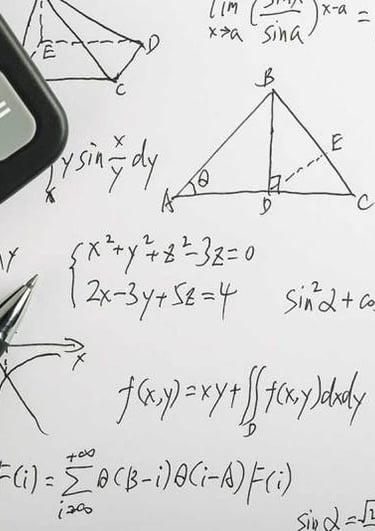 lim x→a (sinx/sina)^x-a =
E D
C
y sin x/y dy
B
E
θ
A D C
{ x²+y²+z²-3z=0
2x-3y+5z=4
sin²α+co
x
f(x,y)=xy+∬_D f(x,y)dxdy
F(i)=∑ θ(B-i)θ(i-A)F(i)
+∞
sinα=√2